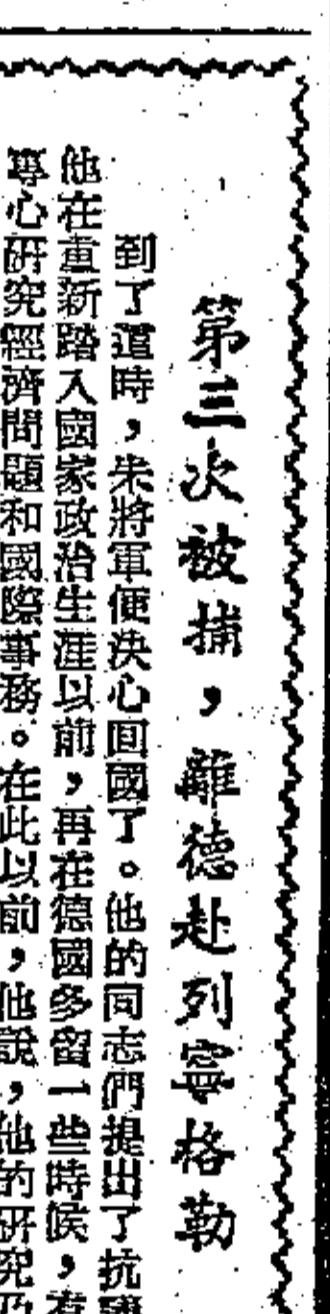 第三次被捕，離德赴列寧格勒
到了這時，朱將軍便決心回國了。他的同志們提出了抗議
他在重新踏入國家政治生涯以前，再在德國多留一些時候，
專心研究經濟問題和國際事務。在此以前，他說，他的研究乃